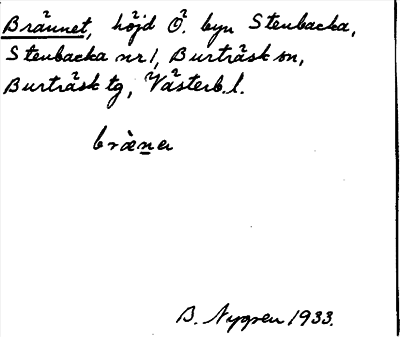 Brännet, höjd Ö. byn Stenbacka,
Stenbacka nr 1, Burträsk sn,
Burträsk tg, Västerb. l.
bràṉer
B. Nygren 1933.